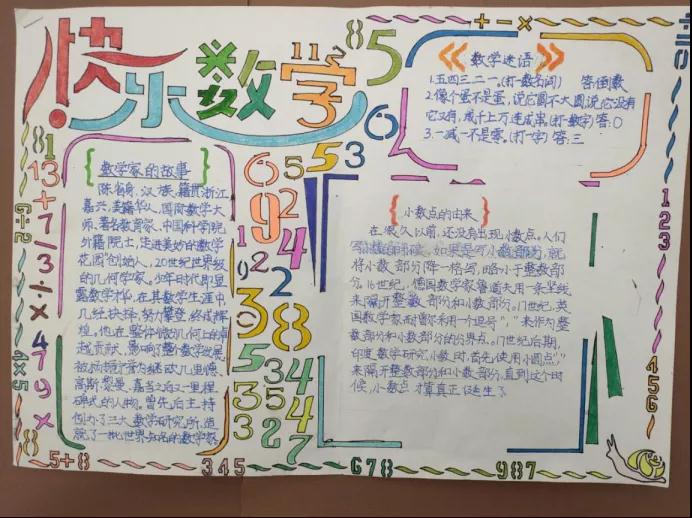 快乐数学
数学迷语
1.五四三二一。(打一数名词) 答:倒数
2.像个蛋不是蛋,说它圆不大圆,说它没有
它又有,成千上万连成串(打一数字)答:0
3.一减一不是零。(打一字)答:三
数学家的故事
陈省身,汉族,籍贯浙江
嘉兴,美籍华人,国际数学大
师、著名教育家、中国科学院
外籍院士,走进美妙的数学
花园创始人,20世纪世界级
的几何学家。少年时代即显
露数学才华,在其数学生涯中,
几经抉择,努力攀登,终成辉
煌。他在整体微分几何上的卓
越贡献,影响了整个数学发展,
被杨振宁誉为继欧几里德、
高斯、黎曼、嘉当之后又一里程
碑式的人物。曾先后主持
创办了三大数学研究所,造
就了一批世界知名的数学家。
小数点的由来
在很久以前,还没有出现小数点。人们
写小数的时候,如果是写小数部分,就
将小数部分降一格写,略小于整数部
分。16世纪,德国数学家鲁道夫用一条竖线
来隔开整数部分和小数部分。17世纪,英
国数学家耐普尔采用一个逗号","来作为整
数部分和小数部分的分界点。17世纪后期,
印度数学研究小数时,首先使用小圆点"."
来隔开整数部分和小数部分,直到这个时
候,小数点才算真正诞生了
5+8
345
678
987
123
456
4×5
6÷2